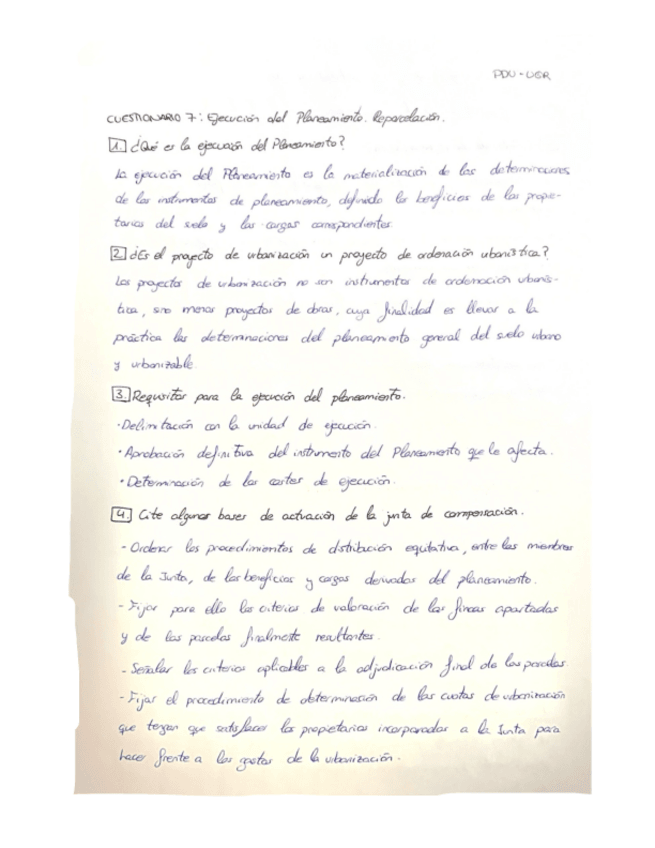 PDU - UGR
CUESTIONARIO 7: Ejecución del Planeamiento. Reparcelación.
1. ¿Qué es la ejecución del Planeamiento?
La ejecución del Planeamiento es la materialización de las determinaciones
de los instrumentos de planeamiento, definido los beneficios de los propie-
tarios del suelo y las cargas correspondientes.
2. ¿Es el proyecto de urbanización un proyecto de ordenación urbanística?
Los proyectos de urbanización no son instrumentos de ordenación urbanís-
tica, sino meros proyectos de obras, cuya finalidad es llevar a la
práctica las determinaciones del planeamiento general del suelo urbano
y urbanizable.
3. Requisitos para la ejecución del planeamiento.
· Delimitación con la unidad de ejecución.
· Aprobación definitiva del instrumento del Planeamiento que le afecta.
· Determinación de los costes de ejecución.
4. Cite algunas bases de actuación de la junta de compensación.
- Ordenar los procedimientos de distribución equitativa, entre los miembros
de la Junta, de los beneficios y cargas derivados del planeamiento.
- Fijar para ello los criterios de valoración de las fincas aportadas
y de las parcelas finalmente resultantes.
- Señalar los criterios aplicables a la adjudicación final de las parcelas.
- Fijar el procedimiento de determinación de las cuotas de urbanización
que tengan que satisfacer los propietarios incorporados a la Junta para
hacer frente a los gastos de la urbanización.